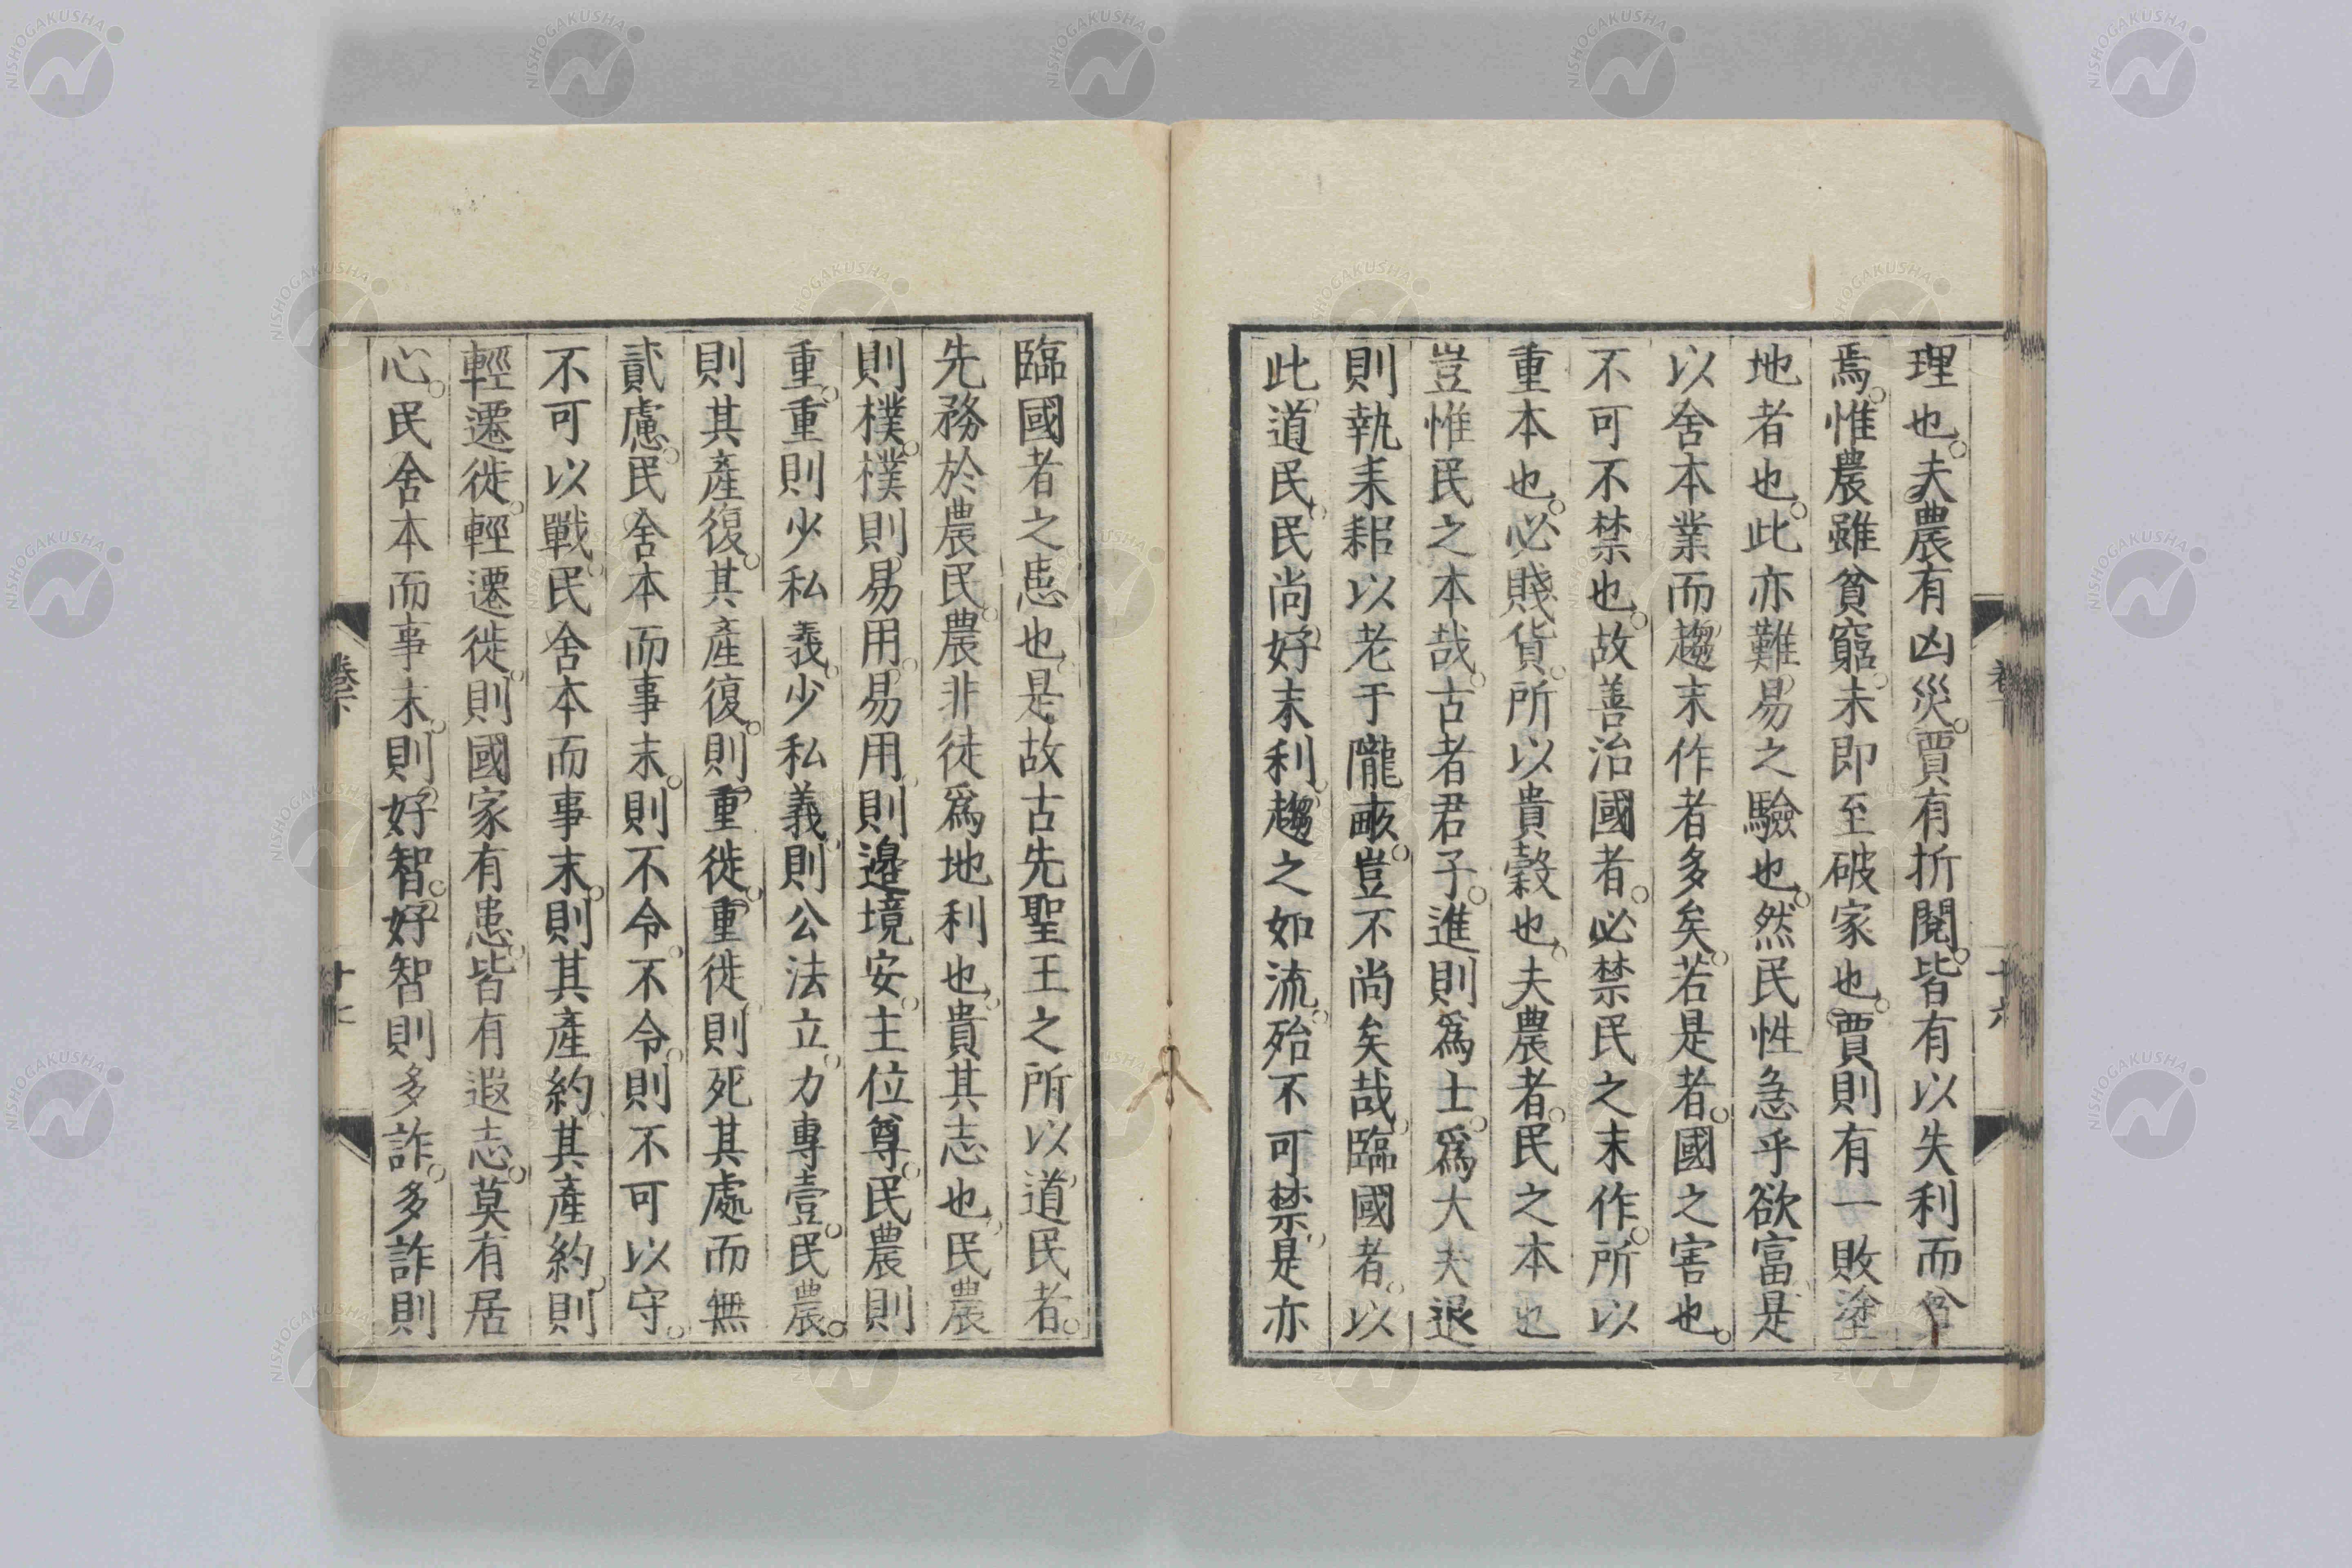 理也。夫農有凶災。賈有折閱。皆有以失利而舍
焉。惟農雖貧窮。未即至破家也。賈則有一敗塗
地者也。此亦難易之驗也。然民性急乎欲富。是
以舍本業而趨末作者多矣。若是者。國之害也。
不可不禁也。故善治國者。必禁民之末作。所以
重本也。必賤貨。所以貴穀也。夫農者。民之本也
豈惟民之本哉。古者君子。進則爲士。爲大夫退
則執耒耜以老于隴畝。豈不尚矣哉。臨國者。以
此道民。民尚好末利。趨之如流。殆不可禁。是亦
十六
臨國者之患也。是故古先聖王之所以道民者。
先務於農民。農非徒爲地利也。貴其志也。民農
則樸。樸則易用。易用。則邊境安。主位尊。民農則
重。重則少私義。少私義。則公法立。力專壹。民農。
則其產復。其產復。則重徙。重徙則死其處而無
貳慮。民舍本而事末。則不令。不令。則不可以守。
不可以戰。民舍本而事末。則其產約。其產約。則
輕遷徙。輕遷徙。則國家有患。皆有遐志。莫有居
心。民舍本而事末。則好智。好智則多詐。多詐則
卷下
NISHOGAKUSHA